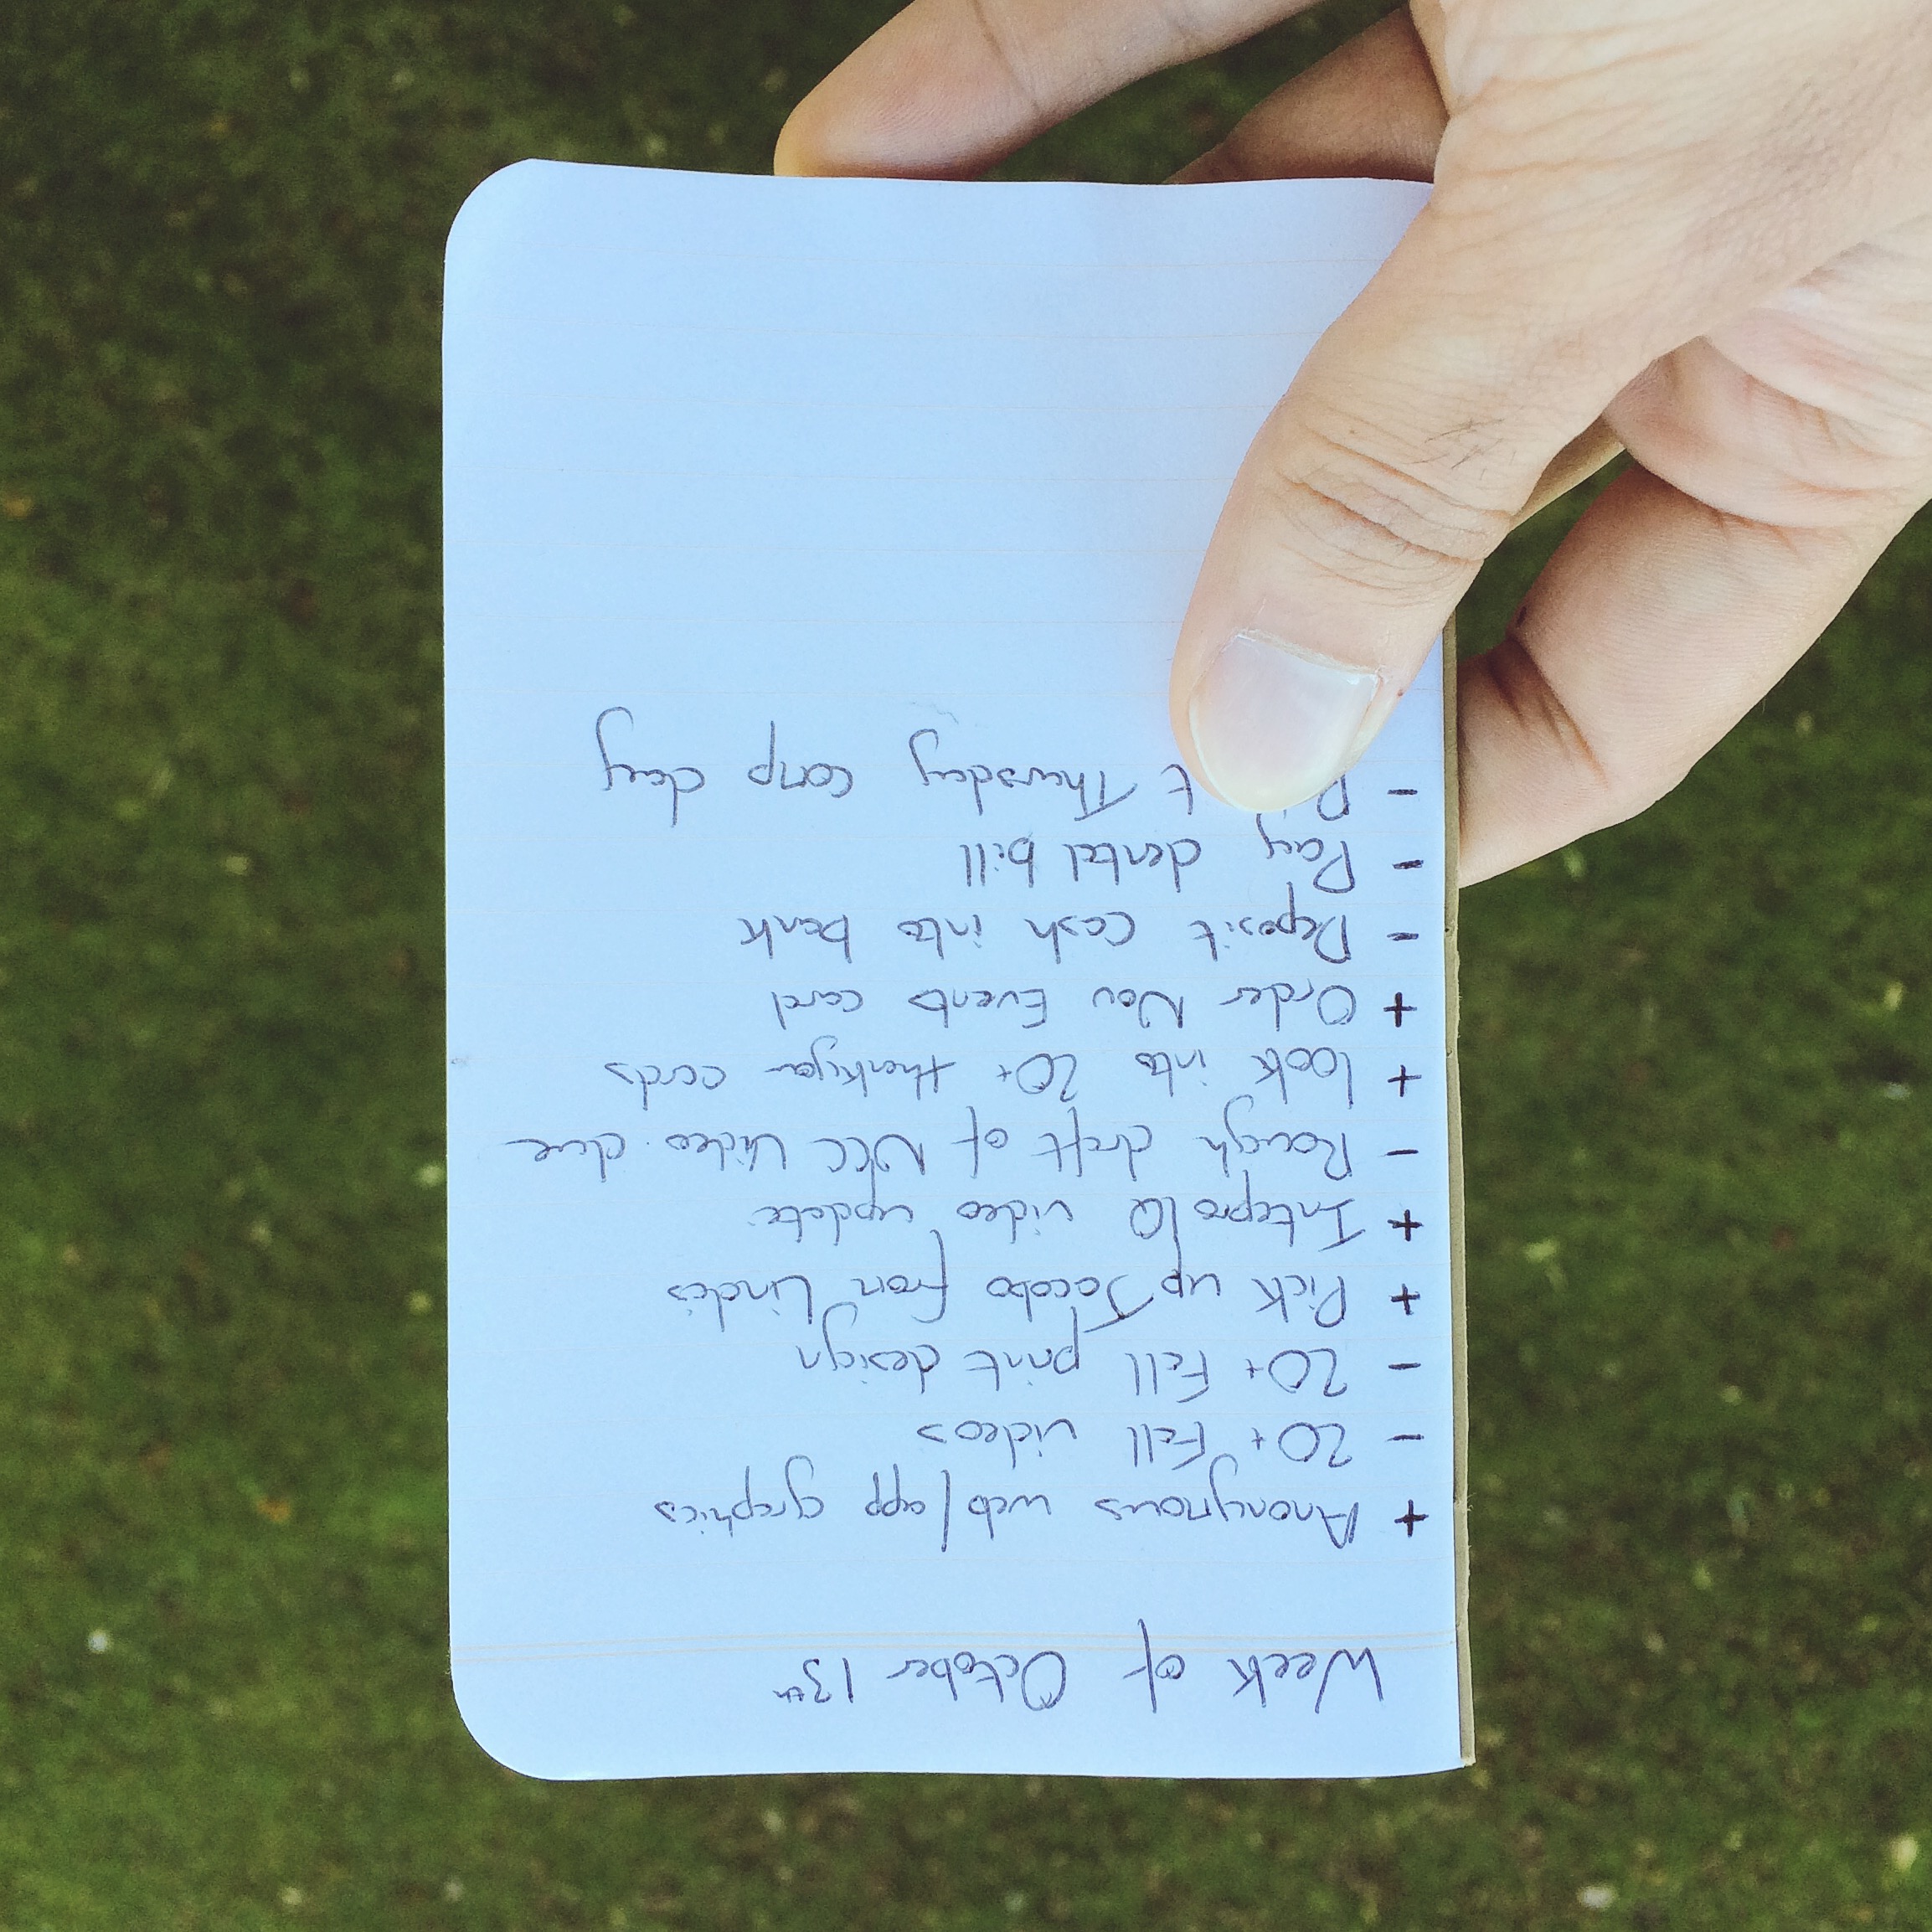 Week of October 13th
+ Anonymous web/app graphics
- 20+ Fall videos
- 20+ Fall print design
+ Pick up Jacobo from Linda's
+ Intepro IQ video update
- Rough draft of NCC Video due
+ look into 20+ thankyou cards
+ Order Nov Events card
- Deposit cash into bank
- Pay dental bill
- Thursday comp day